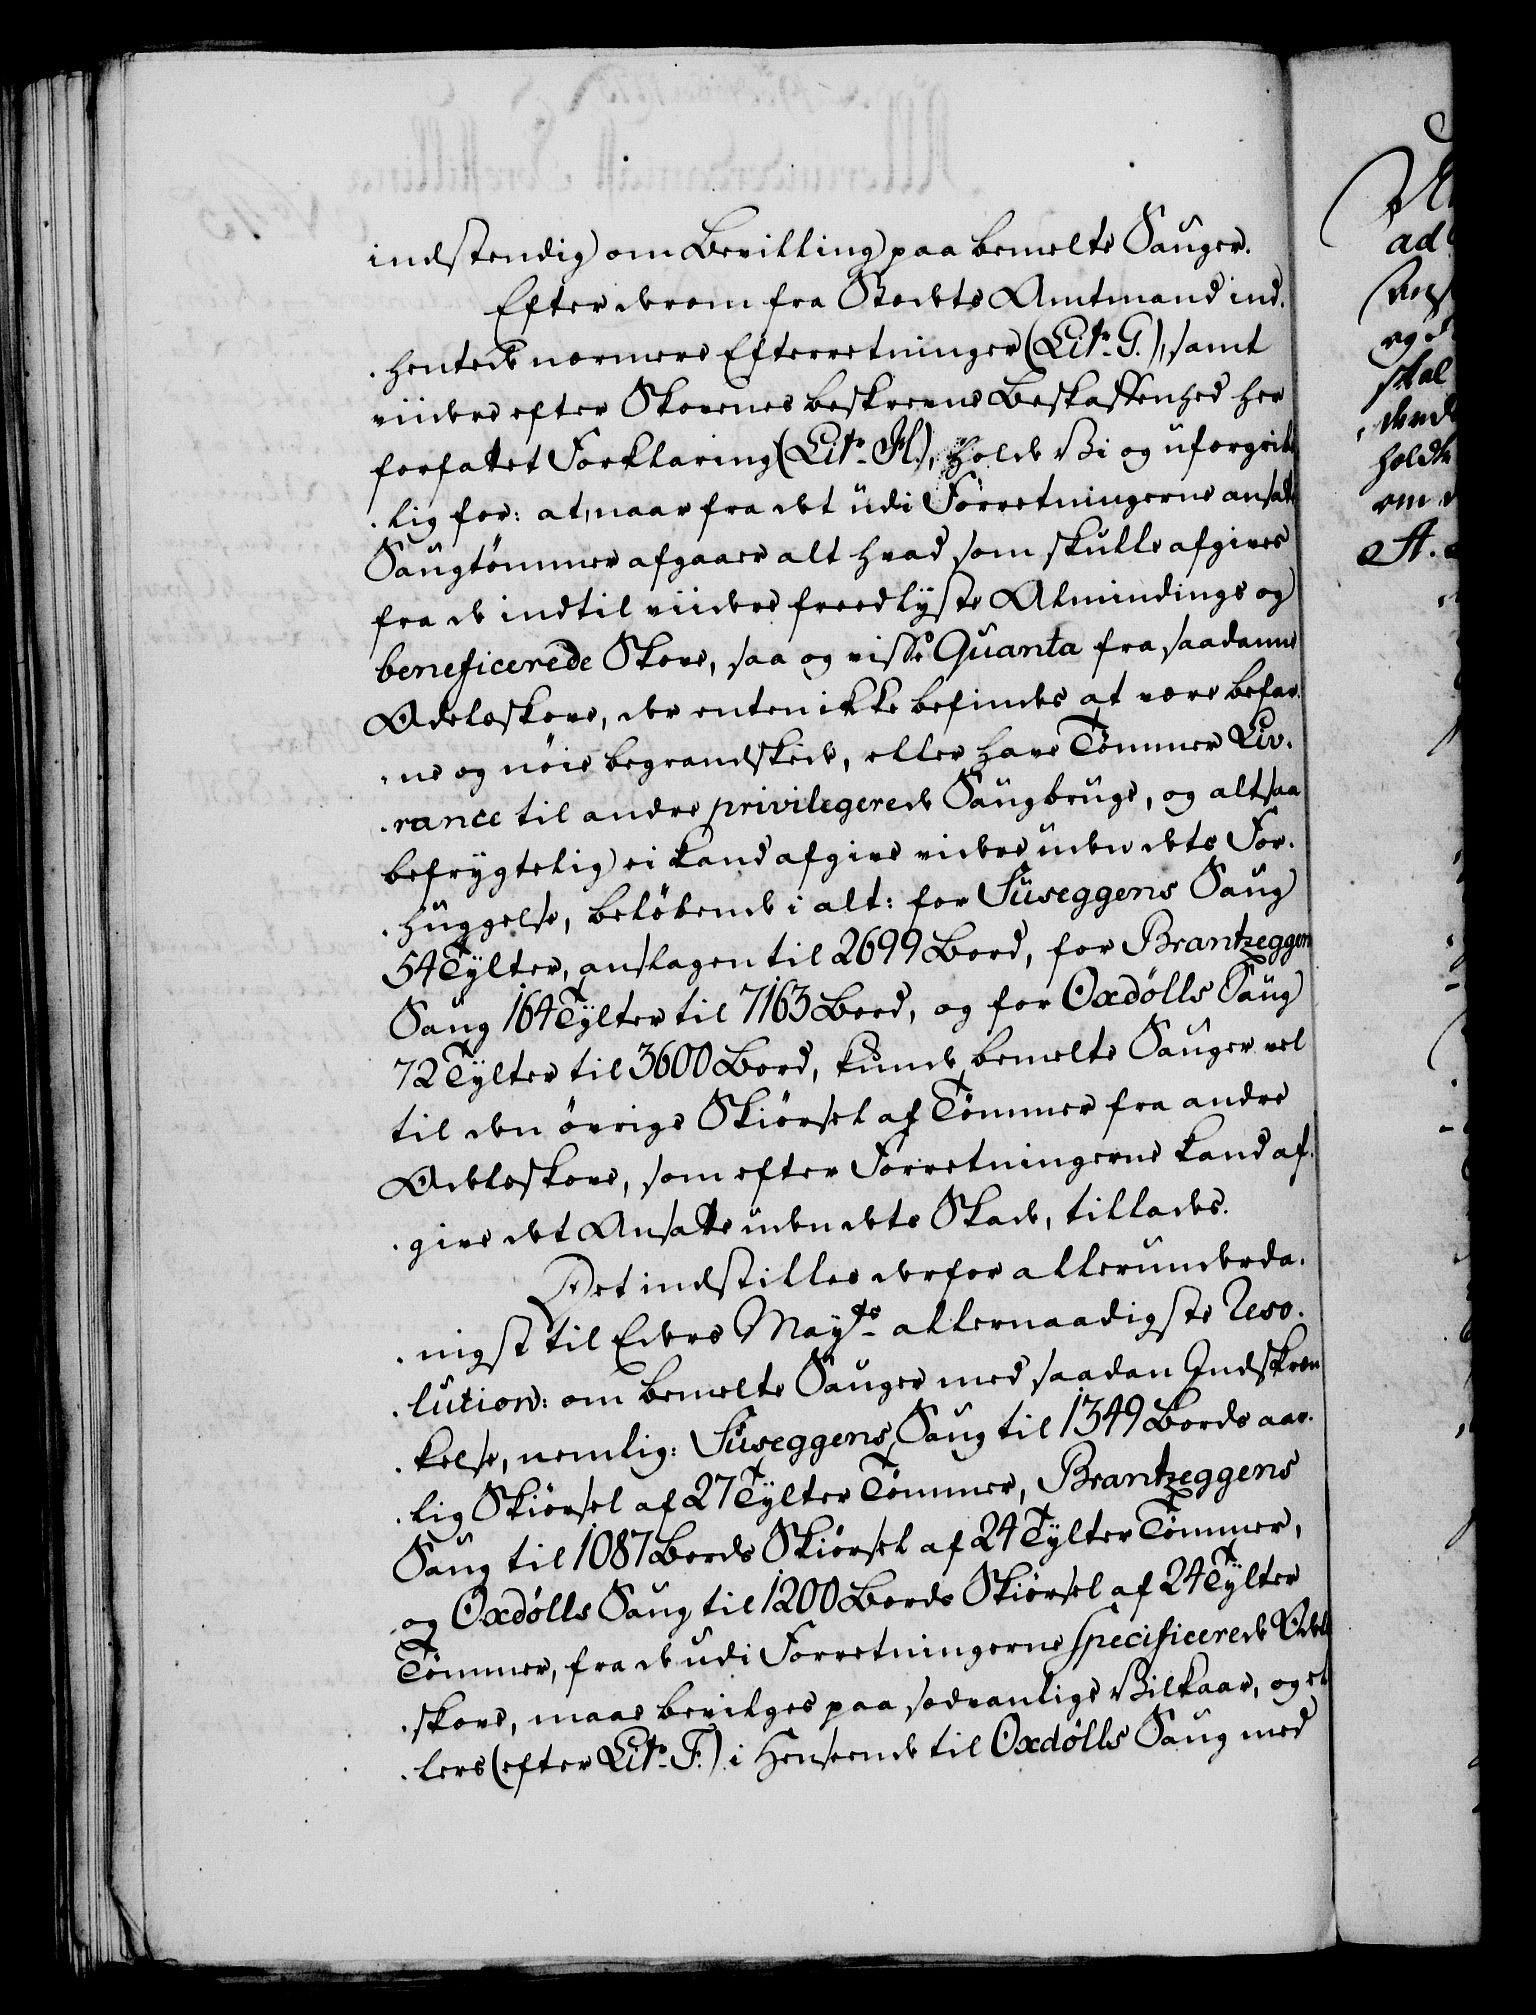 indstendig om Bevilling paa bemelte Sauger.
Efter derom fra Stedets Amtmand ind-
hentede nærmere Efterretninger (Litr. G.), samt
viidere efter Skovenes beskrevne Beskaffenhed her
forfattet Forklaring (Litr. H.), holde Vi og uforgrib
lig for: at, naar fra det udi Forretningerne ansatte
Saugtømmer afgaaer alt hvad som skulle afgives
fra de indtil viidere freedlyste Almindings og
beneficerede Skove, saa og visse Quanta fra saadanne
Odelsskove, der enten ikke befindes at være befar-
ne og nøie begrandskede, eller have Tømmer Liv-
rance til andre privilegerede Saugbruge, og altsaa
befrygtelig ei kand afgive videre uden dets For-
huggelse, beløbende i alt: for Süseggens Saug
54 Tylter, anslagen til 2699 Bord, for Brantzeggen
Saug 164 Tylter til 7163 Bord, og for Oxdølls Saug
72 Tylter til 3600 Bord, kunde bemelte Sauger vel
til den øvrige Skiørsel af Tømmer fra andre
Odelsskove, som efter Forretningerne kand af-
give det Ansatte uden dets Skade, tillades.
Det indstilles derfor allerunderda-
nigst til Eders Mayts. allernaadigste Reso-
lution: om bemelte Sauger med saadan Indskræn
kelse, nemlig: Süseggens Saug til 1349 Bords aar-
lig Skiørsel af 27 Tylter Tømmer, Brantzeggens
Saug til 1087 Bords Skiørsel af 24 Tylter Tømmer,
og Oxdølls Saug til 1200 Bords Skiørsel af 24 Tylter
Tømmer, fra de udi Forretningerne specificerede Odels
skove, maae bevilges paa sædvanlige Vilkaar, og el
lers (efter Litr. F.) i Henseende til Oxdølls Saug med